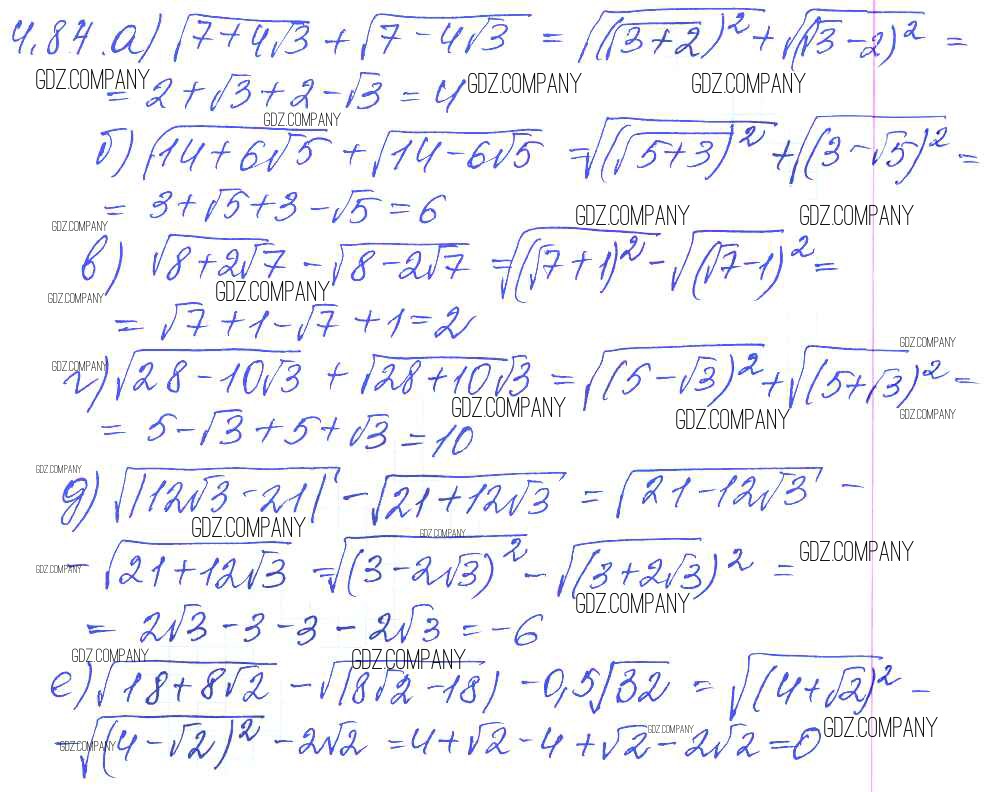 4.84. а) √(7+4√3) + √(7-4√3) = √((√3+2)²) + √((√3-2)²) =
GDZ.COMPANY GDZ.COMPANY GDZ.COMPANY
= 2+√3+2-√3 = 4
GDZ.COMPANY
б) √(14+6√5) + √(14-6√5) = √((√5+3)²) + √((3-√5)²) =
= 3+√5+3-√5=6
GDZ.COMPANY GDZ.COMPANY GDZ.COMPANY
в) √(8+2√7) - √(8-2√7) = √((√7+1)²) - √((√7-1)²) =
GDZ.COMPANY GDZ.COMPANY
= √7+1-√7+1=2
GDZ.COMPANY
г) √(28-10√3) + √(28+10√3) = √((5-√3)²) + √((5+√3)²) =
GDZ.COMPANY GDZ.COMPANY GDZ.COMPANY GDZ.COMPANY
= 5-√3+5+√3 = 10
GDZ.COMPANY
д) √|12√3-21| - √(21+12√3) = √(21-12√3) -
GDZ.COMPANY GDZ.COMPANY
- √(21+12√3) = √((3-2√3)²) - √((3+2√3)²) =
GDZ.COMPANY GDZ.COMPANY GDZ.COMPANY
= 2√3-3-3-2√3 = -6
GDZ.COMPANY GDZ.COMPANY
е) √(18+8√2) - √|8√2-18| - 0,5√32 = √((4+√2)²) -
GDZ.COMPANY GDZ.COMPANY GDZ.COMPANY
- √((4-√2)²) - 2√2 = 4+√2-4+√2-2√2=0